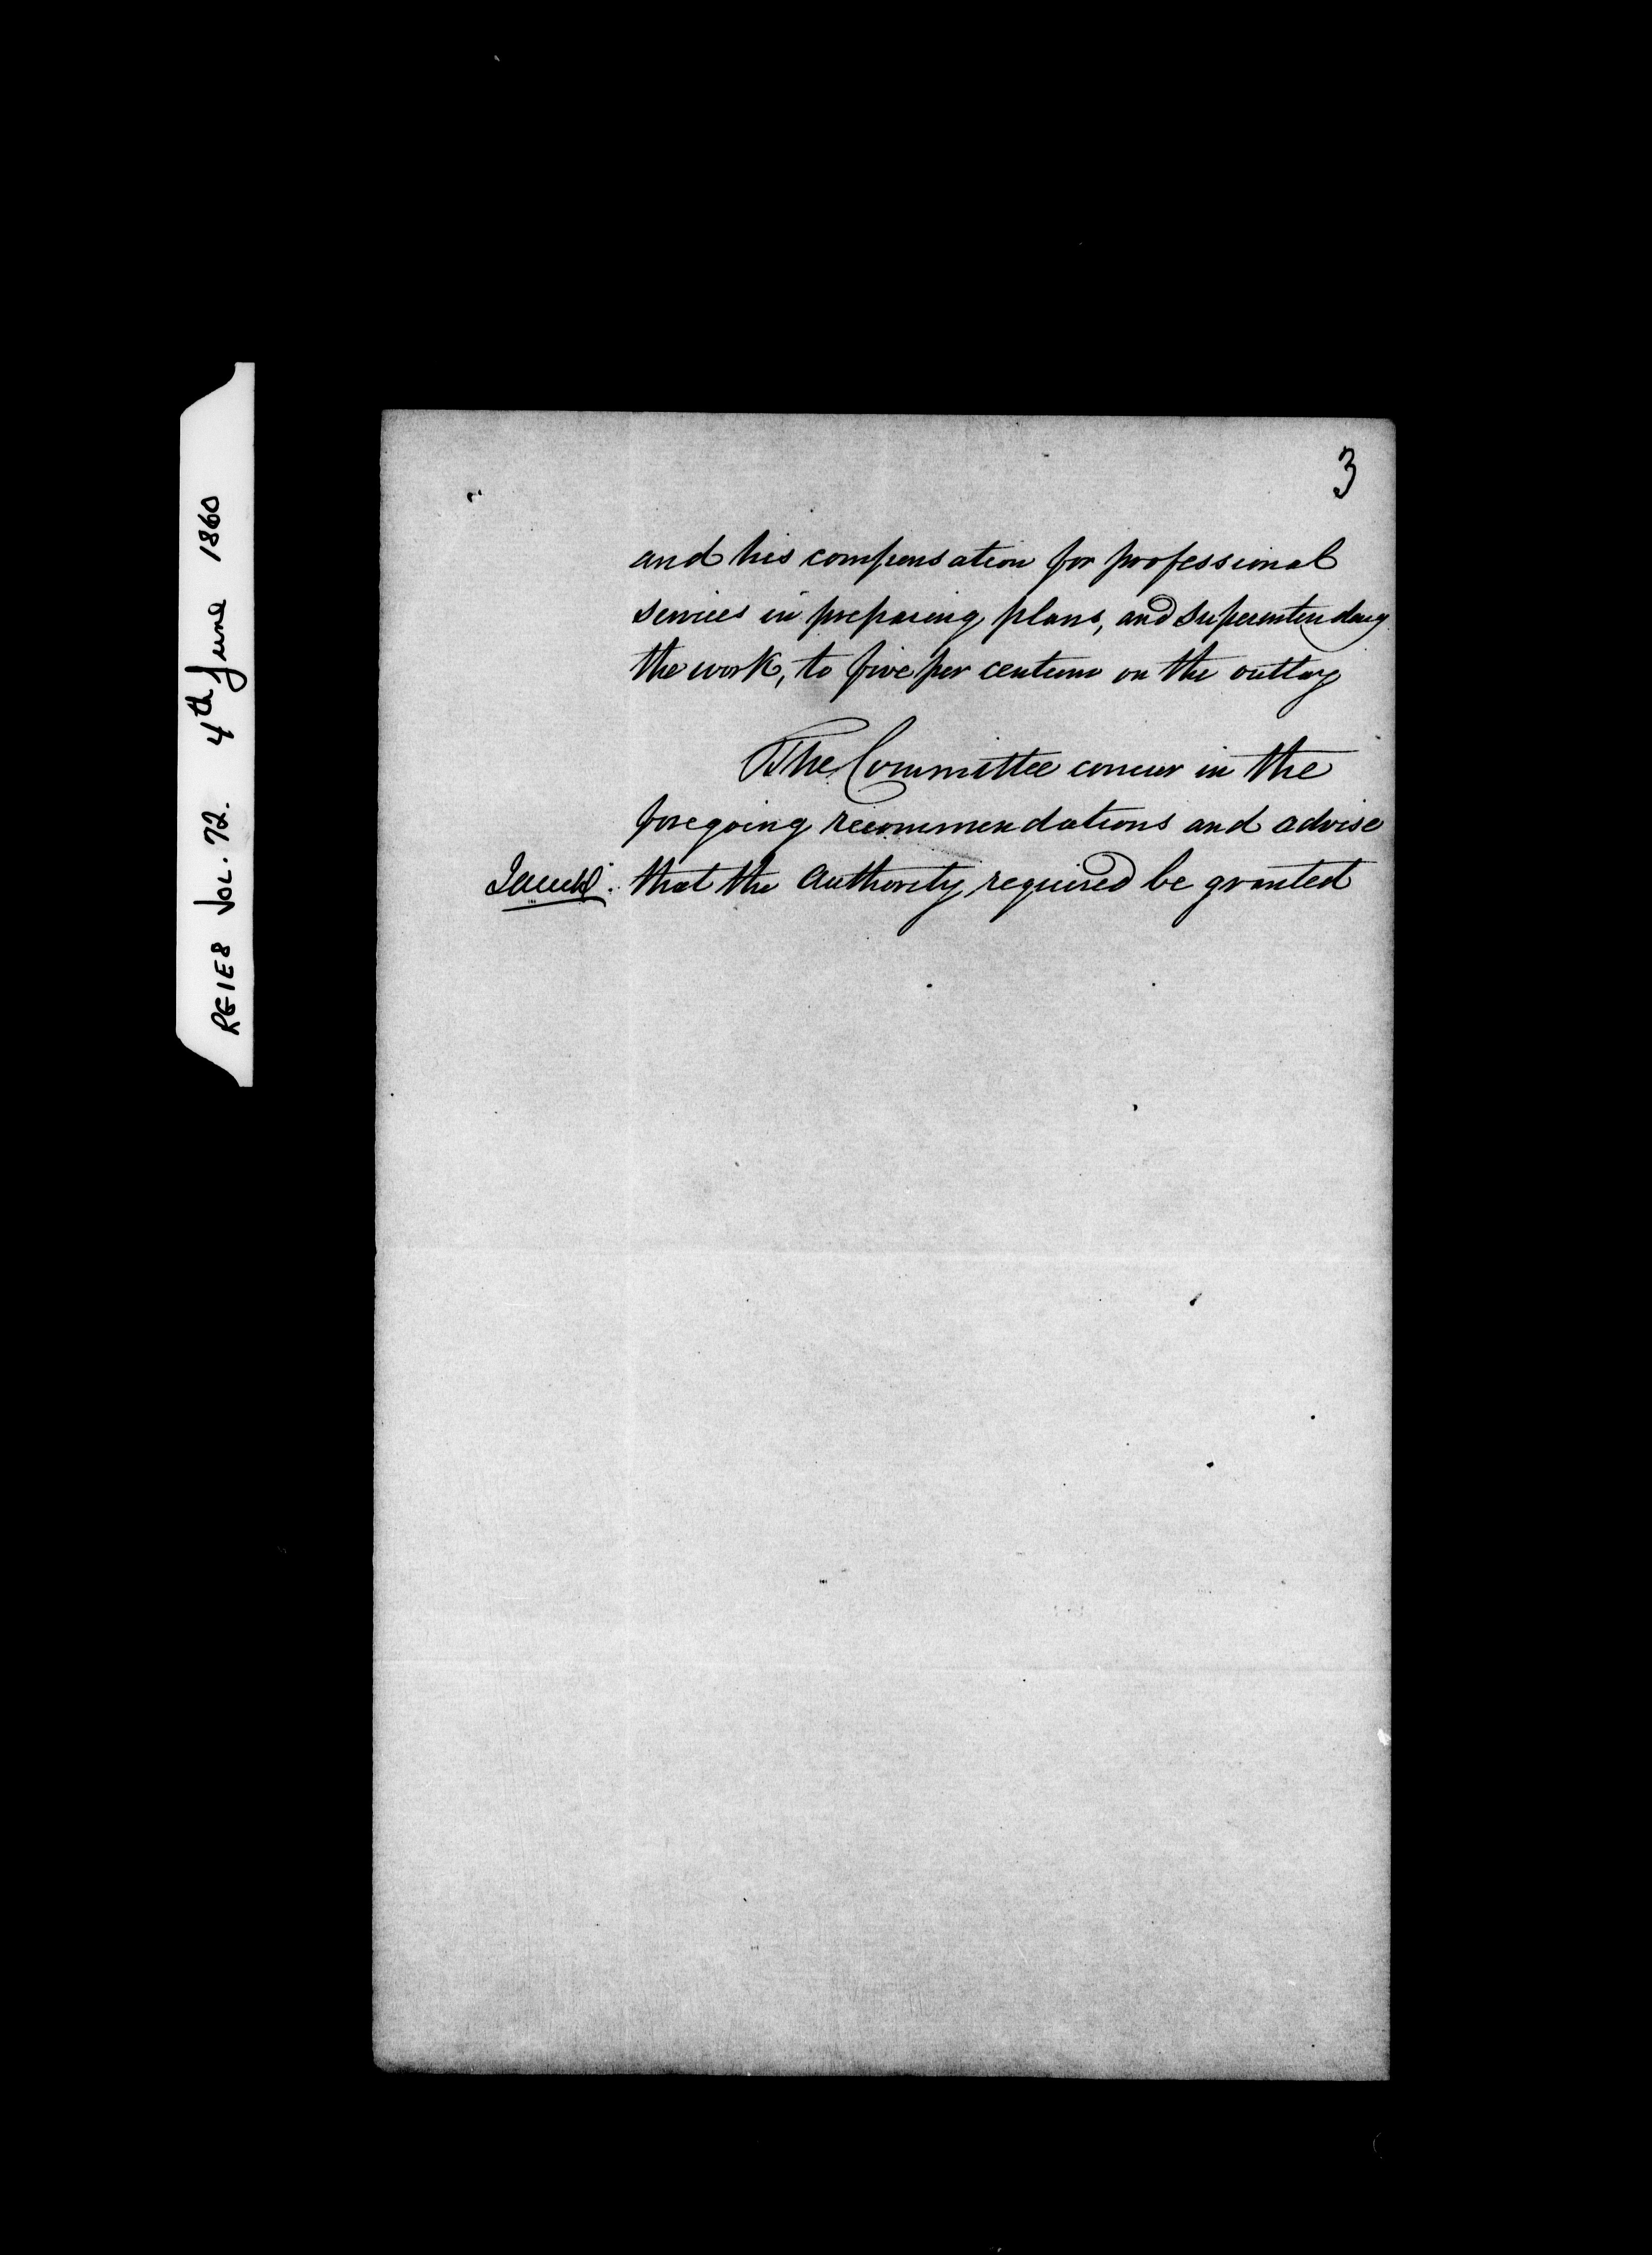 RG1E8 VOL. 72. 4th June 1860
3
and his compensation for professional
services in preparing plans, and superintending
the work, to five per centum on the outlay
The Committee concur in the
foregoing recommendations and advise
that the authority required be granted